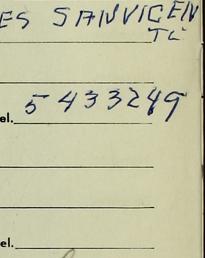 ES SANVICEN
TE
el. 5 433249
el.